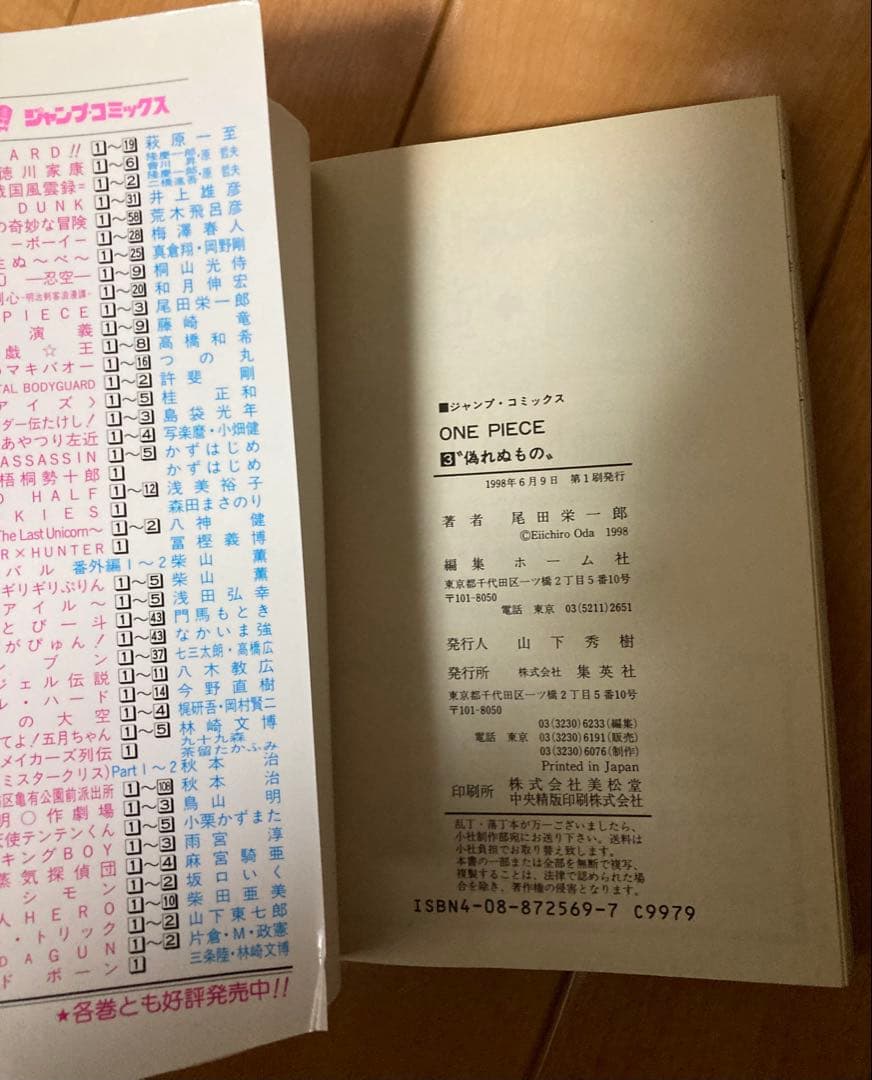 ジャンプ・コミックス
ARD!! 1〜19 萩原一至
徳川家康 1〜6 隆慶一郎・原哲夫
國風雲録= 1〜2 隆慶一郎・原哲夫
DUNK 1〜31 井上雄彦
の奇妙な冒険 1〜58 荒木飛呂彦
−ボーイ− 1〜28 梅澤春人
生ぬ〜べ〜 1〜25 真倉翔・岡野剛
―忍空― 1〜9 桐山光侍
剣心-明治剣客浪漫譚- 1〜20 和月伸宏
PIECE 1〜3 尾田栄一郎
演義 1〜9 藤崎竜
戯☆王 1〜8 高橋和希
マキバオー 1〜16 つの丸
TAL BODYGUARD 1〜2 許斐剛
アイズ〉 1〜5 桂正和
ダー伝たけし! 1〜3 島袋光年
あやつり左近 1〜4 写楽麿・小畑健
ASSASSIN 1〜5 かずはじめ
梧桐勢十郎 1 かずはじめ
HALF 1〜12 浅美裕子
KIES 1 森田まさのり
The Last Unicorn〜 1〜2 八神健
R×HUNTER 1 冨樫義博
バル 番外編1〜2 柴山薫
ギリギリぷりん 1〜5 柴山薫
アイル〜 1〜5 浅田弘幸
とび一斗 1〜43 門馬もとき
がぴゅん! 1〜43 なかいま強
ンブン 1〜37 七三太朗・高橋広
ジェル伝説 1〜11 八木教広
ル・ハード 1〜14 今野直樹
の大空 1〜4 梶研吾・岡村賢二
てよ!五月ちゃん 1〜5 林崎文博
メイカーズ列伝 1 九十九森 茶留たかふみ
ミスタークリス) Part1〜2 秋本治
区亀有公園前派出所 1〜108 秋本治
明○作劇場 1〜3 鳥山明
天使テンテンくん 1〜5 小栗かずまた
キングBOY 1〜3 雨宮淳
蒸気探偵団 1〜4 麻宮騎亜
シモン 1〜2 坂口いく
人HERO 1〜10 柴田亜美
・トリック 1〜2 山下東七郎
DAGUN 1〜2 片倉・M・政憲
ドボーン 1 三条陸・林崎文博
★各巻とも好評発売中!!
■ジャンプ・コミックス
ONE PIECE
3〝偽れぬもの〟
1998年6月9日 第1刷発行
著者 尾田栄一郎
©Eiichiro Oda 1998
編集 ホーム社
東京都千代田区一ツ橋2丁目5番10号
〒101-8050
電話 東京 03(5211)2651
発行人 山下秀樹
発行所 株式会社 集英社
東京都千代田区一ツ橋2丁目5番10号
〒101-8050
03(3230)6233(編集)
電話 東京 03(3230)6191(販売)
03(3230)6076(制作)
Printed in Japan
印刷所 株式会社美松堂
中央精版印刷株式会社
乱丁・落丁本が万一ございましたら、
小社制作部宛にお送り下さい。送料は
小社負担でお取り替え致します。
本書の一部または全部を無断で複写、
複製することは、法律で認められた場
合を除き、著作権の侵害となります。
ISBN4-08-872569-7 C9979